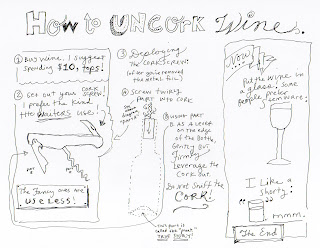 How to UNCORK Wine.
① Buy wine. I suggest
spending $10, tops!
② Get out your CORK
SCREW.
I prefer the kind
the waiters use.
The fancy ones are
USELESS!
③ Deploying
the CORKSCREW:
(after you've removed
the metal foil)
④ Screw twirly
part into cork
⑤ Using part
B. as a lever
on the edge
of the bottle,
Gently but
firmly
Leverage the
Cork out.
Do Not Sniff the
CORK!
this part is
called the "punt"
TRUE STORY!
Now
Put the wine in
a glass! Some
people prefer
stemware.
I Like a
"shorty."
mmm.
The End